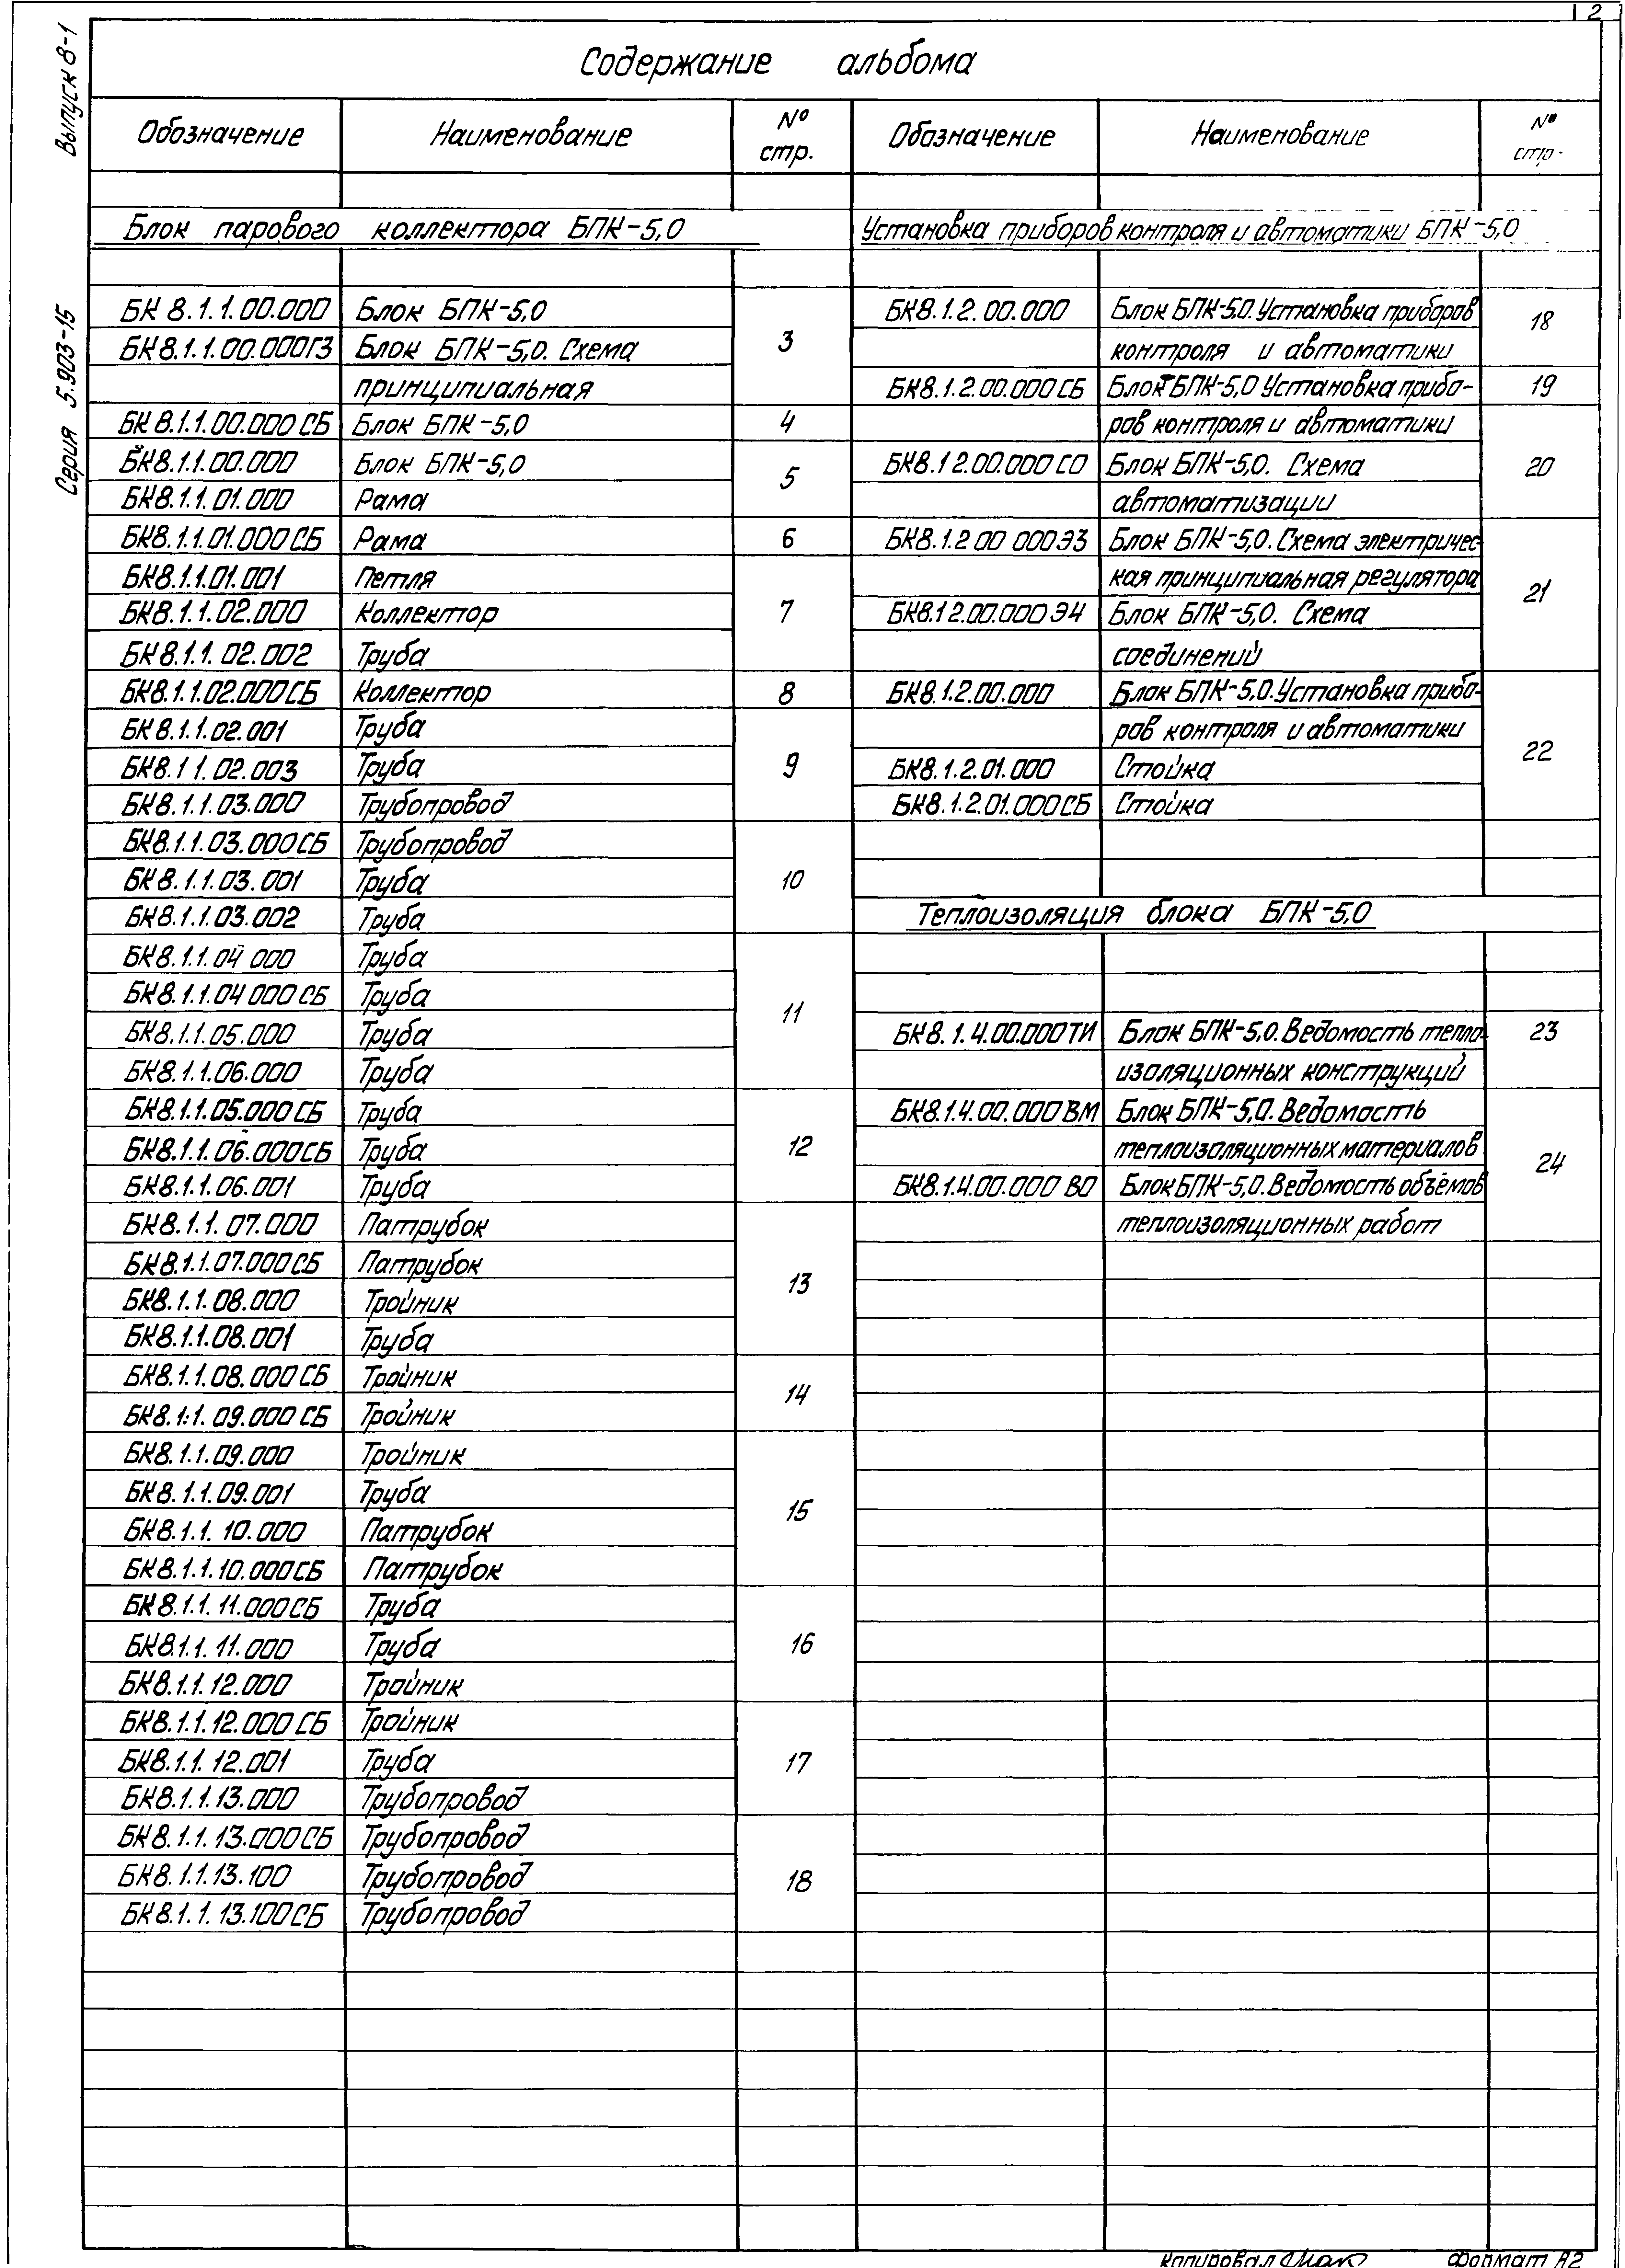 2
Выпуск 8-1
Серия 5.903-15
Содержание альбома
Обозначение Наименование № стр.
Блок парового коллектора БПК-5,0
БК 8.1.1.00.000 Блок БПК-5,0 3
БК8.1.1.00.000ГЗ Блок БПК-5,0. Схема
принципиальная
БК 8.1.1.00.000СБ Блок БПК-5,0 4
БК8.1.1.00.000 Блок БПК-5,0 5
БК8.1.1.01.000 Рама
БК8.1.1.01.000СБ Рама 6
БК8.1.1.01.001 Петля 7
БК8.1.1.02.000 Коллектор
БК8.1.1.02.002 Труба
БК8.1.1.02.000СБ Коллектор 8
БК8.1.1.02.001 Труба 9
БК8.1 1.02.003 Труба
БК8.1.1.03.000 Трубопровод
БК8.1.1.03.000СБ Трубопровод 10
БК8.1.1.03.001 Труба
БК8.1.1.03.002 Труба
БК8.1.1.04 000 Труба 11
БК8.1.1.04 000СБ Труба
БК8.1.1.05.000 Труба
БК8.1.1.06.000 Труба
БК8.1.1.05.000СБ Труба 12
БК8.1.1.06.000СБ Труба
БК8.1.1.06.001 Труба
БК8.1.1.07.000 Патрубок 13
БК8.1.1.07.000СБ Патрубок
БК8.1.1.08.000 Тройник
БК8.1.1.08.001 Труба
БК8.1.1.08.000СБ Тройник 14
БК8.1.1.09.000СБ Тройник
БК8.1.1.09.000 Тройник 15
БК8.1.1.09.001 Труба
БК8.1.1.10.000 Патрубок
БК8.1.1.10.000СБ Патрубок
БК8.1.1.11.000СБ Труба 16
БК8.1.1.11.000 Труба
БК8.1.1.12.000 Тройник
БК8.1.1.12.000СБ Тройник 17
БК8.1.1.12.001 Труба
БК8.1.1.13.000 Трубопровод
БК8.1.1.13.000СБ Трубопровод 18
БК8.1.1.13.100 Трубопровод
БК8.1.1.13.100СБ Трубопровод
Обозначение Наименование № стр.
Установка приборов контроля и автоматики БПК-5,0
БК8.1.2.00.000 Блок БПК-5.0. Установка приборов 18
контроля и автоматики
БК8.1.2.00.000СБ Блок БПК-5,0 Установка прибо- 19
ров контроля и автоматики
БК8.1 2.00.000СО Блок БПК-5,0. Схема 20
автоматизации
БК8.1.2 00 000ЭЗ Блок БПК-5,0. Схема электричес-
кая принципиальная регулятора 21
БК8.1 2.00.000Э4 Блок БПК-5,0. Схема
соединений
БК8.1.2.00.000 Блок БПК-5.0. Установка прибо-
ров контроля и автоматики 22
БК8.1.2.01.000 Стойка
БК8.1.2.01.000СБ Стойка
Теплоизоляция блока БПК-5,0
БК8.1.4.00.000ТИ Блок БПК-5,0. Ведомость тепло- 23
изоляционных конструкций
БК8.1.4.00.000ВМ Блок БПК-5,0. Ведомость
теплоизоляционных материалов 24
БК8.1.4.00.000 ВО Блок БПК-5,0. Ведомость объёмов
теплоизоляционных работ
Копировал
Формат А2